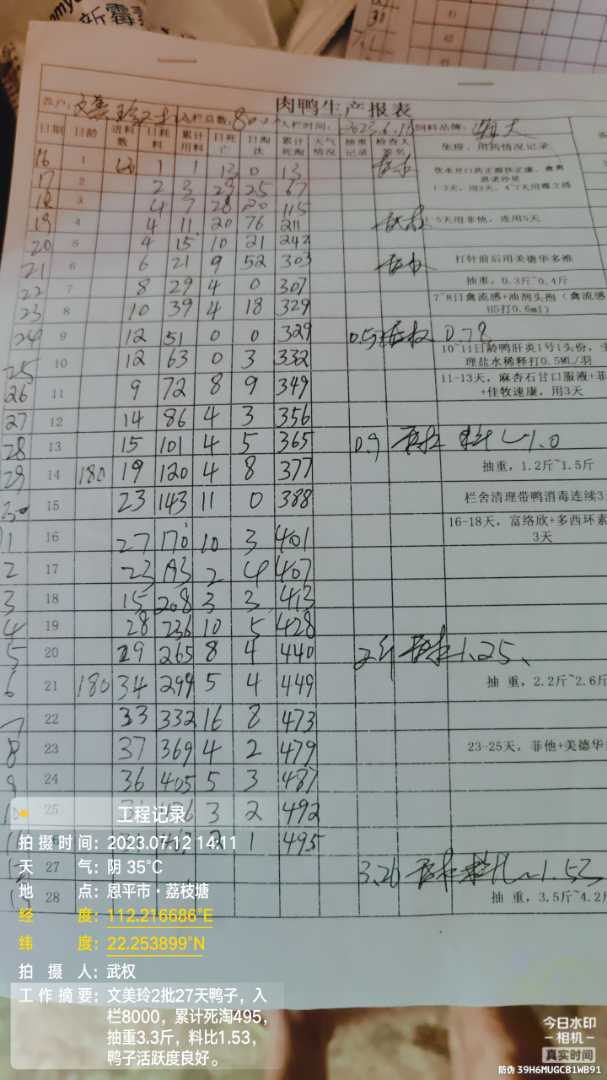 新霉
肉鸭生产报表
客户: 文美玲 入栏总数: 8000 入栏时间: 2023.6.15 饲料品牌:
日期 日龄 进料数 日耗料 累计用料 日死亡 日淘汰 累计死淘 天气情况 抽重记录 检查人签名 免疫、用药情况记录
16 1 1 1 13 0 13
17 2 3 29 25 67
18 3 4 7 28 20 115
19 4 4 11 20 76 211 5天用菲他,连用5天
20 5 4 15 10 21 242
21 6 6 21 9 52 303 打针前后用美德华多维
22 7 8 29 4 0 307 抽重,0.3斤~0.4斤
23 8 10 39 4 18 329 7~8日禽流感+油剂头孢(禽流感
H5打0.6ml)
24 9 12 51 0 0 329 0.5
25 10 12 63 0 3 332 10~11日龄鸭肝炎1号1头份,生
理盐水稀释打0.5ML/羽
26 11 9 72 8 9 349 11-13天,麻杏石甘口服液+菲
+佳牧速康,用3天
27 12 14 86 4 3 356
28 13 15 101 4 5 365 0.9 1.0
29 14 180 19 120 4 8 377 抽重,1.2斤~1.5斤
30 15 23 143 11 0 388 栏舍清理带鸭消毒连续3
1 16 27 170 10 3 401 16-18天,富络欣+多西环素
3天
2 17 23 193 2 4 407
3 18 15 208 3 3 413
4 19 28 236 10 5 428
5 20 29 265 8 4 440 2斤 1.25
6 21 180 34 299 5 4 449 抽重,2.2斤~2.6斤
7 22 33 332 16 8 473
8 23 37 369 4 2 479 23-25天,菲他+美德华
9 24 36 405 5 3 487
10 25 3 2 492
1 495
27 3.26 1.53
28 抽重,3.5斤~4.2斤
工程记录
拍摄时间: 2023.07.12 14:11
天气: 阴 35℃
地点: 恩平市·荔枝塘
经度: 112.216686°E
纬度: 22.253899°N
拍摄人: 武权
工作摘要: 文美玲2批27天鸭子,入
栏8000,累计死淘495,
抽重3.3斤,料比1.53,
鸭子活跃度良好。
今日水印
-相机-
真实时间
防伪 39H6MUGCB1WB91